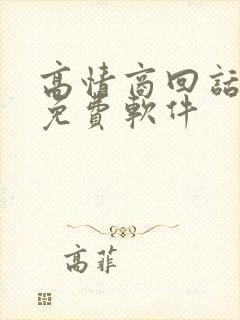 高情商回話
免費軟件
高菲